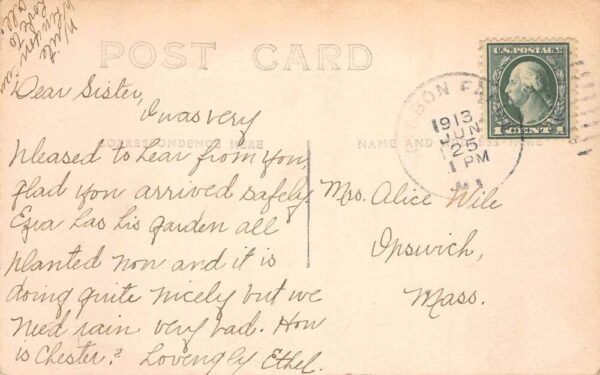 Write
when you
come to
all
POST CARD
U.S. POSTAGE
1 CENT 1
1913
JUN
25
1 PM
CORRESPONDENCE HERE
NAME AND ADDRESS HERE
Dear Sister,
I was very
pleased to hear from you,
glad you arrived safely
Ezra has his garden all
planted now and it is
doing quite nicely but we
need rain very bad. How
is Chester? Lovengly Ethel.
Mrs. Alice Wile
Ipswich,
Mass.